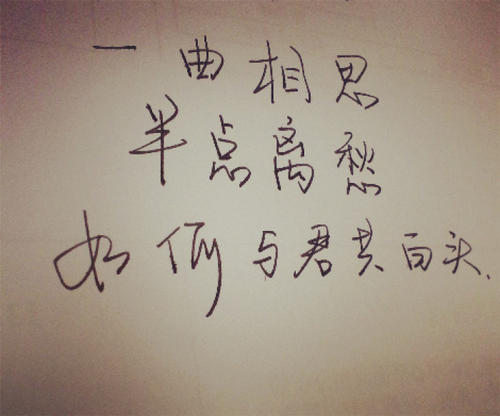 一曲相思
半点离愁
如何与君共白头.